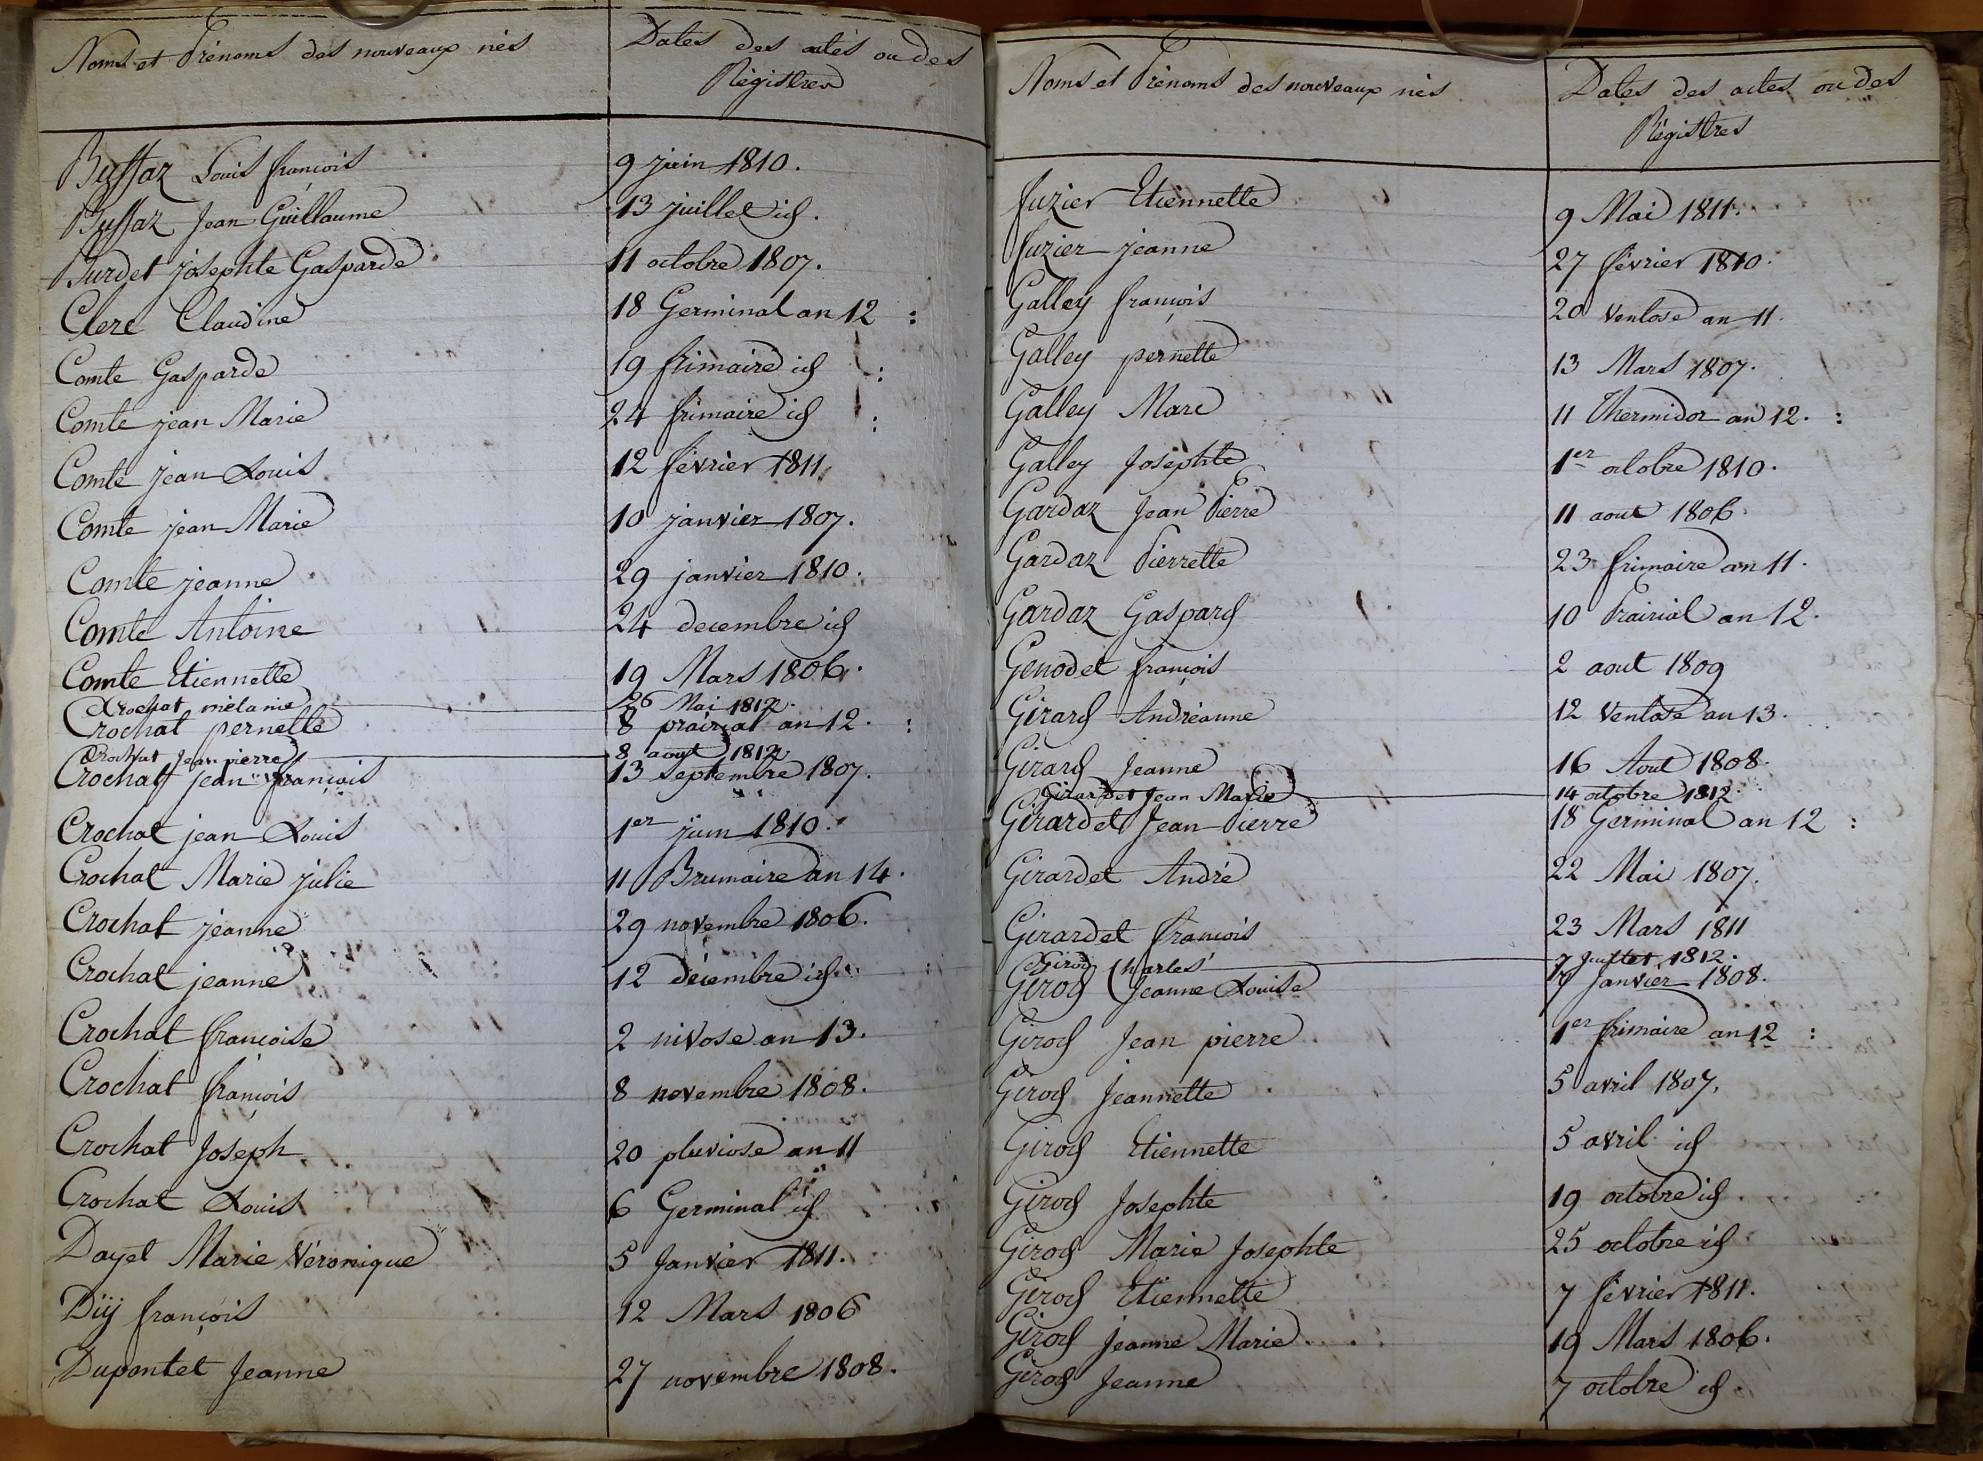 Noms et Prénoms des nouveaux nés Dates des actes ou des
Régistres
Buffaz Louis françois 9 juin 1810.
Buffaz Jean Guillaume 13 juillet id.
Burdet josephte Gasparde 11 octobre 1807.
Clerc Claudine 18 Germinal an 12 :
Comte Gasparde 19 frimaire id :
Comte jean Marie 24 frimaire id :
Comte jean Louis 12 février 1811.
Comte jean Marie 10 janvier 1807.
Comte jeanne 29 janvier 1810.
Comte Antoine 24 decembre id
Comte Etiennette 19 Mars 1806.
Crochat mélanie 26 Mai 1812.
Crochat pernette 8 prairial an 12. :
Crochat Jean pierre 8 aout 1812
Crochat jean françois 13 septembre 1807.
Crochat jean Louis 1er juin 1810.
Crochat Marie julie 11 Brumaire an 14.
Crochat jeanne 29 novembre 1806.
Crochat jeanne 12 décembre id
Crochat françoise 2 nivose an 13.
Crochat françois 8 novembre 1808.
Crochat Joseph 20 pluviose an 11
Crochat Louis 6 Germinal id
Dayet Marie Véronique 5 Janvier 1811.
Dÿ françois 12 Mars 1806
Dupontet Jeanne 27 novembre 1808.
Noms et Prénoms des nouveaux nés Dates des actes ou des
Régistres
fuzier Etiennette 9 Mai 1811.
fuzier jeanne 27 février 1810.
Galley françois 20 Ventose an 11.
Galley pernette 13 Mars 1807.
Galley Marc 11 Thermidor an 12. :
Galley Josephte 1er octobre 1810.
Gardaz Jean Pierre 11 aout 1806
Gardaz Pierrette 23 frimaire an 11.
Gardaz Gaspard 10 Prairial an 12.
Genodet françois 2 aout 1809
Girard Andréanne 12 Ventose an 13.
Girard Jeanne 16 Aout 1808.
Girardet Jean Marie 14 octobre 1812
Girardet Jean Pierre 18 Germinal an 12 :
Girardet André 22 Mai 1807.
Girardet françois 23 Mars 1811
Girod Charles 7 Juillet 1812.
Girod Jeanne Louise 7 Janvier 1808.
Girod Jean pierre 1er frimaire an 12 :
Girod Jeannette 5 avril 1807.
Girod Etiennette 5 avril id
Girod Josephte 19 octobre id
Girod Marie Josephte 25 octobre id
Girod Etiennette 7 février 1811.
Girod Jeanne Marie 19 Mars 1806.
Girod Jeanne 7 octobre id